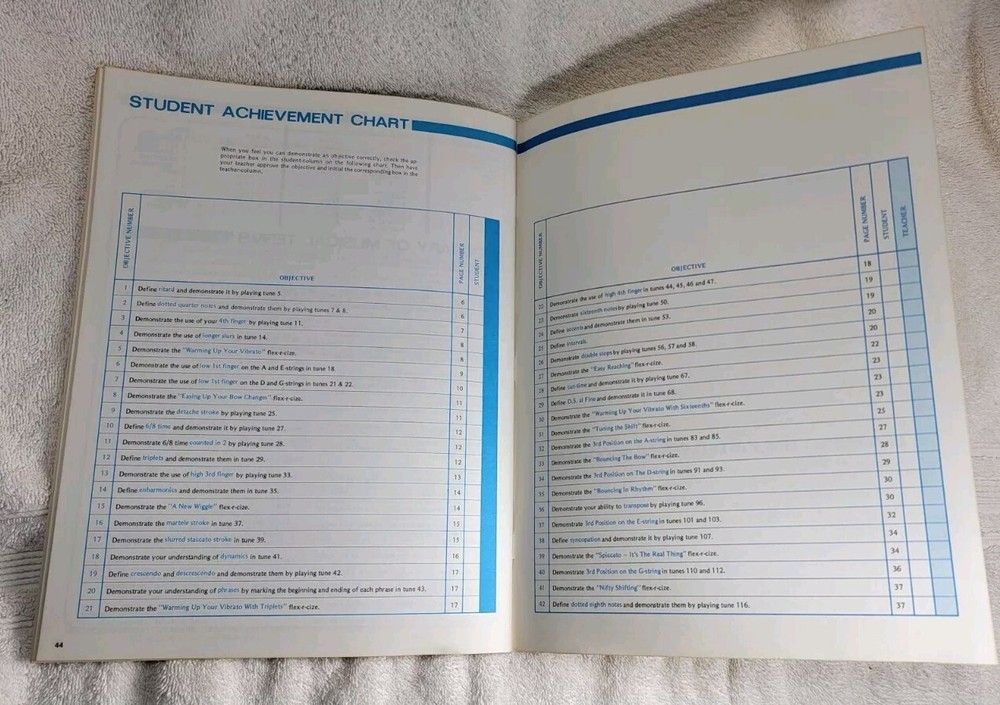 STUDENT ACHIEVEMENT CHART
When you feel you can demonstrate an objective correctly, check the ap-
propriate box in the student-column on the following chart. Then have
your teacher approve the objective and initial the corresponding box in the
teacher-column.
OBJECTIVE NUMBER OBJECTIVE PAGE NUMBER STUDENT
1 Define ritard and demonstrate it by playing tune 5. 6
2 Define dotted quarter notes and demonstrate them by playing tunes 7 & 8. 6
3 Demonstrate the use of your 4th finger by playing tune 11. 7
4 Demonstrate the use of longer slurs in tune 14. 8
5 Demonstrate the "Warming Up Your Vibrato" flex-r-cize. 8
6 Demonstrate the use of low 1st finger on the A and E-strings in tune 18. 9
7 Demonstrate the use of low 1st finger on the D and G-strings in tunes 21 & 22. 10
8 Demonstrate the "Easing Up Your Bow Changes" flex-r-cize. 11
9 Demonstrate the detache stroke by playing tune 25. 11
10 Define 6/8 time and demonstrate it by playing tune 27. 12
11 Demonstrate 6/8 time counted in 2 by playing tune 28. 12
12 Define triplets and demonstrate them in tune 29. 12
13 Demonstrate the use of high 3rd finger by playing tune 33. 13
14 Define enharmonics and demonstrate them in tune 35. 14
15 Demonstrate the "A New Wiggle" flex-r-cize. 14
16 Demonstrate the martele stroke in tune 37. 15
17 Demonstrate the slurred staccato stroke in tune 39. 15
18 Demonstrate your understanding of dynamics in tune 41. 16
19 Define crescendo and descrescendo and demonstrate them by playing tune 42. 17
20 Demonstrate your understanding of phrases by marking the beginning and ending of each phrase in tune 43. 17
21 Demonstrate the "Warming Up Your Vibrato With Triplets" flex-r-cize. 17
44
OBJECTIVE NUMBER OBJECTIVE PAGE NUMBER STUDENT TEACHER
22 Demonstrate the use of high 4th finger in tunes 44, 45, 46 and 47. 18
23 Demonstrate sixteenth notes by playing tune 50. 19
24 Define and demonstrate them in tune 53. 19
25 Define intervals. 20
26 Demonstrate double stops by playing tunes 56, 57 and 58. 20
27 Demonstrate the "Easy Reaching" flex-r-cize. 22
28 Define cut-time and demonstrate it by playing tune 67. 23
29 Define D.S. al Fine and demonstrate it in tune 68. 23
30 Demonstrate the "Warming Up Your Vibrato With Sixteenths" flex-r-cize. 23
31 Demonstrate the "Tuning the Shift" flex-r-cize. 25
32 Demonstrate the 3rd Position on the A-string in tunes 83 and 85. 27
33 Demonstrate the "Bouncing The Bow" flex-r-cize. 28
34 Demonstrate the 3rd Position on The D-string in tunes 91 and 93. 29
35 Demonstrate the "Bouncing In Rhythm" flex-r-cize. 30
36 Demonstrate your ability to transpose by playing tune 96. 30
37 Demonstrate 3rd Position on the E-string in tunes 101 and 103. 32
38 Define syncopation and demonstrate it by playing tune 107. 34
39 Demonstrate the "Spiccato – It's The Real Thing" flex-r-cize. 34
40 Demonstrate 3rd Position on the G-string in tunes 110 and 112. 36
41 Demonstrate the "Nifty Shifting" flex-r-cize. 37
42 Define dotted eighth notes and demonstrate them by playing tune 116. 37